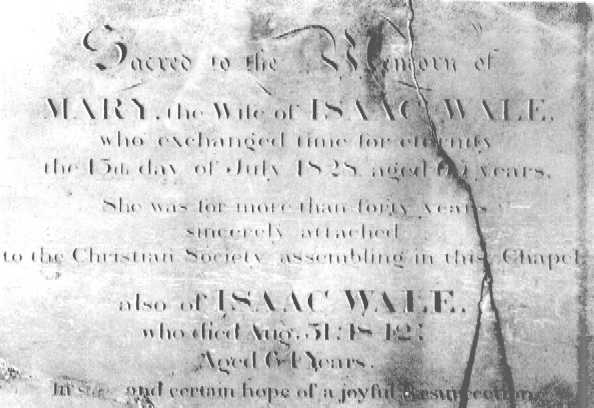 Sacred to the Memory of
MARY, the Wife of ISAAC WALE,
who exchanged time for eternity
the 15th day of July 1828, aged years.
She was for more than forty years
sincerely attached
to the Christian Society assembling in this Chapel.
also of ISAAC WALE,
who died Aug. 31, 1842;
Aged 64 Years.
In and certain hope of a joyful resurrection